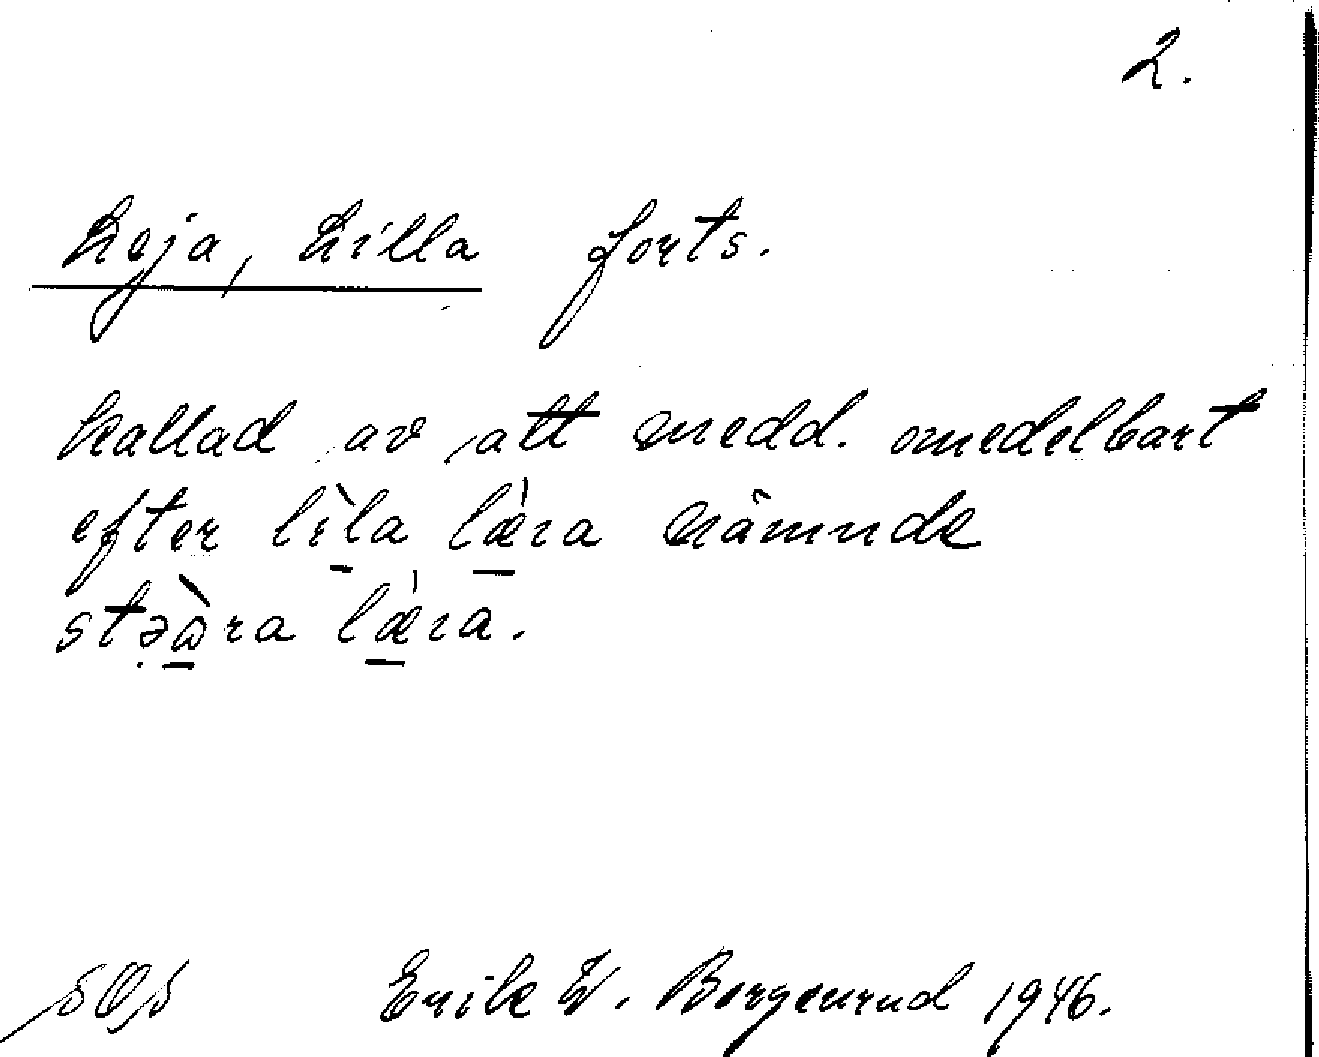 2.
Loja, Lilla forts.
kallad av att medd. omedelbart
efter lìla læ̀ra nämnde
stəòra læ̀ra.
Erik W. Bergenrud 1946.